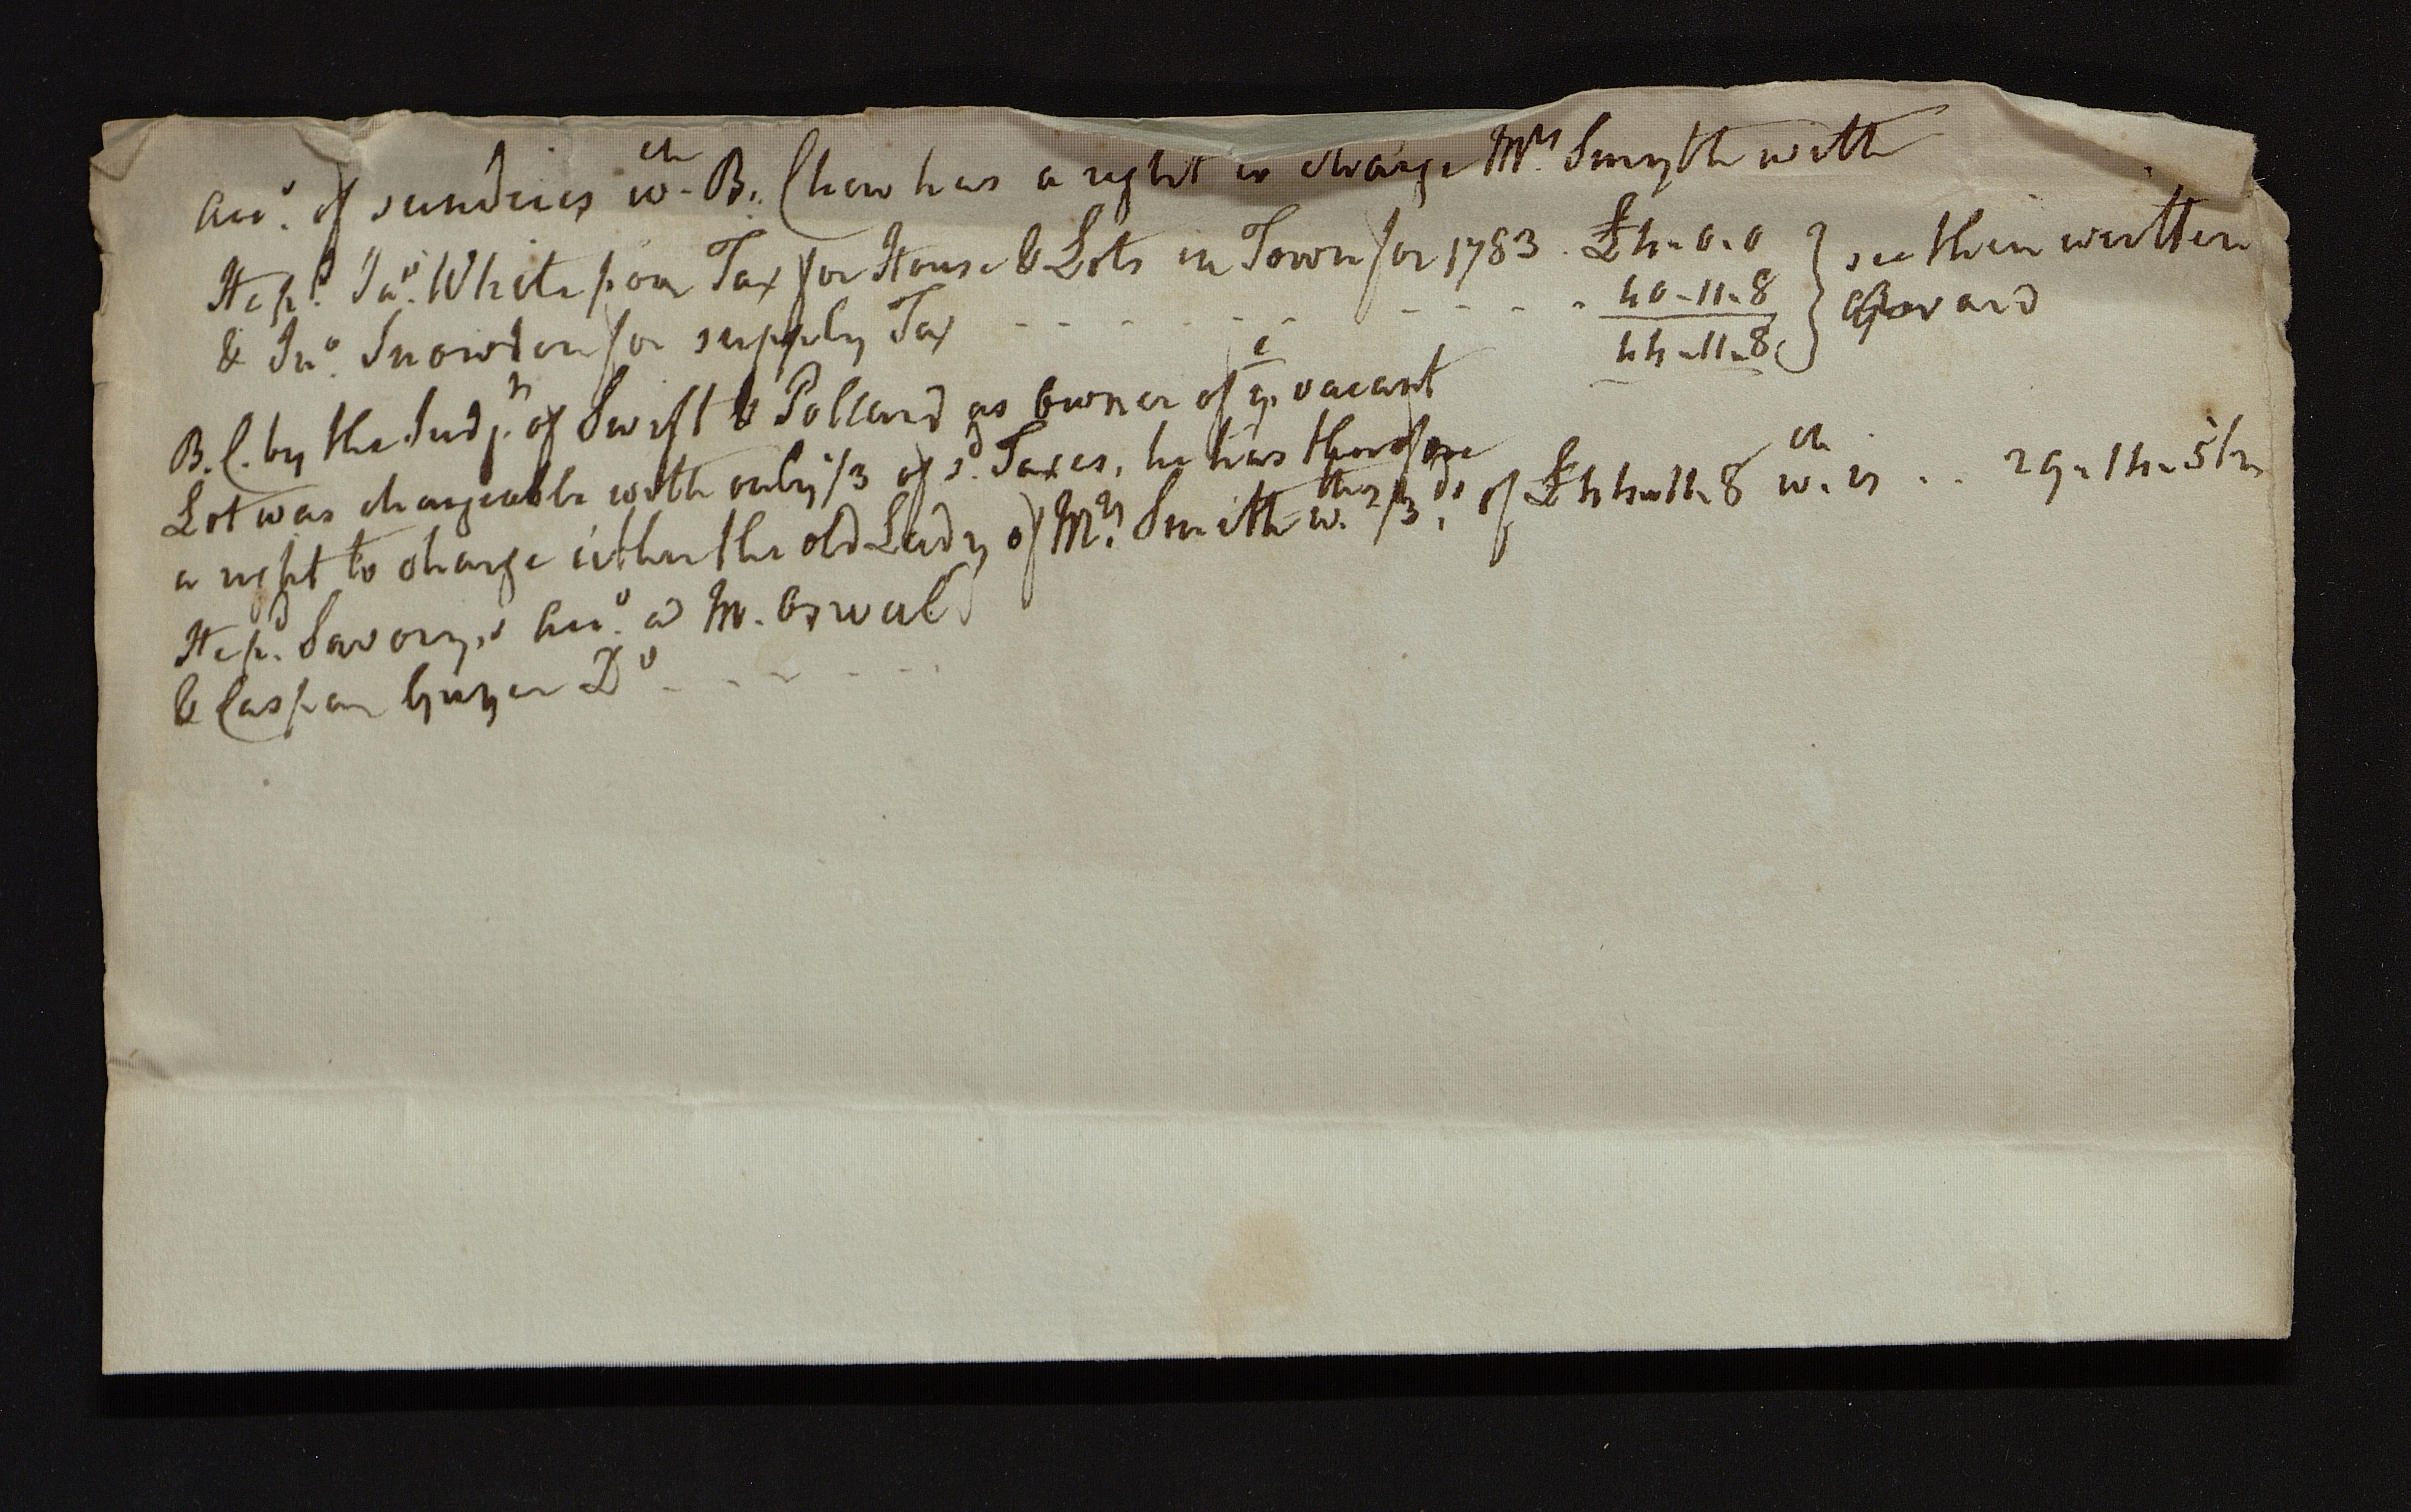 Acco. of sundries wch. B. Chew has a right to charge Mrs. Smyth with
He pd. Jas. White poor Tax for House & Lots in Town for 1783 . £4-0-0 } see their written
& Jno. Snowden for supply Tax - - - - - - - - - 40-11-8 } award
44-11-8
B.C. by the Judgt. of Swift & Pollard as owner of ye. vacant
Lot was chargeable with only 1/3 of sd. Taxes, he has therefore
a right to charge either the old Lady of Mrs. Smith wth. 2/3ds. of £44-11-8 wch. is . . 29-14-5 1/2
He pd. Savory's Acco. a M. Oswal
& Caspar Guyer Do. - - - - - -